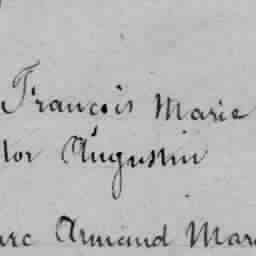 François Marie
tor Augustin
arc Armand Mar